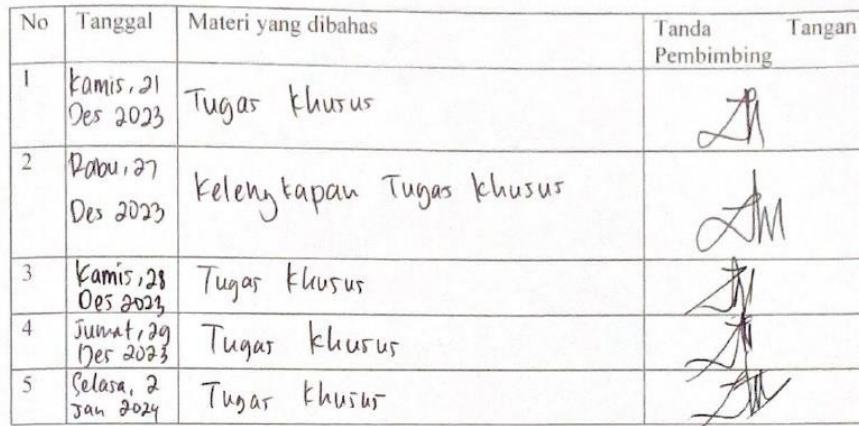 No Tanggal Materi yang dibahas Tanda Tangan
Pembimbing
1 Kamis, 21
Des 2023 Tugas khusus
2 Rabu, 27
Des 2023 Kelengkapan Tugas khusus
3 Kamis, 28
Des 2023 Tugas khusus
4 Jumat, 29
Des 2023 Tugas khusus
5 Selasa, 2
Jan 2024 Tugas khusus